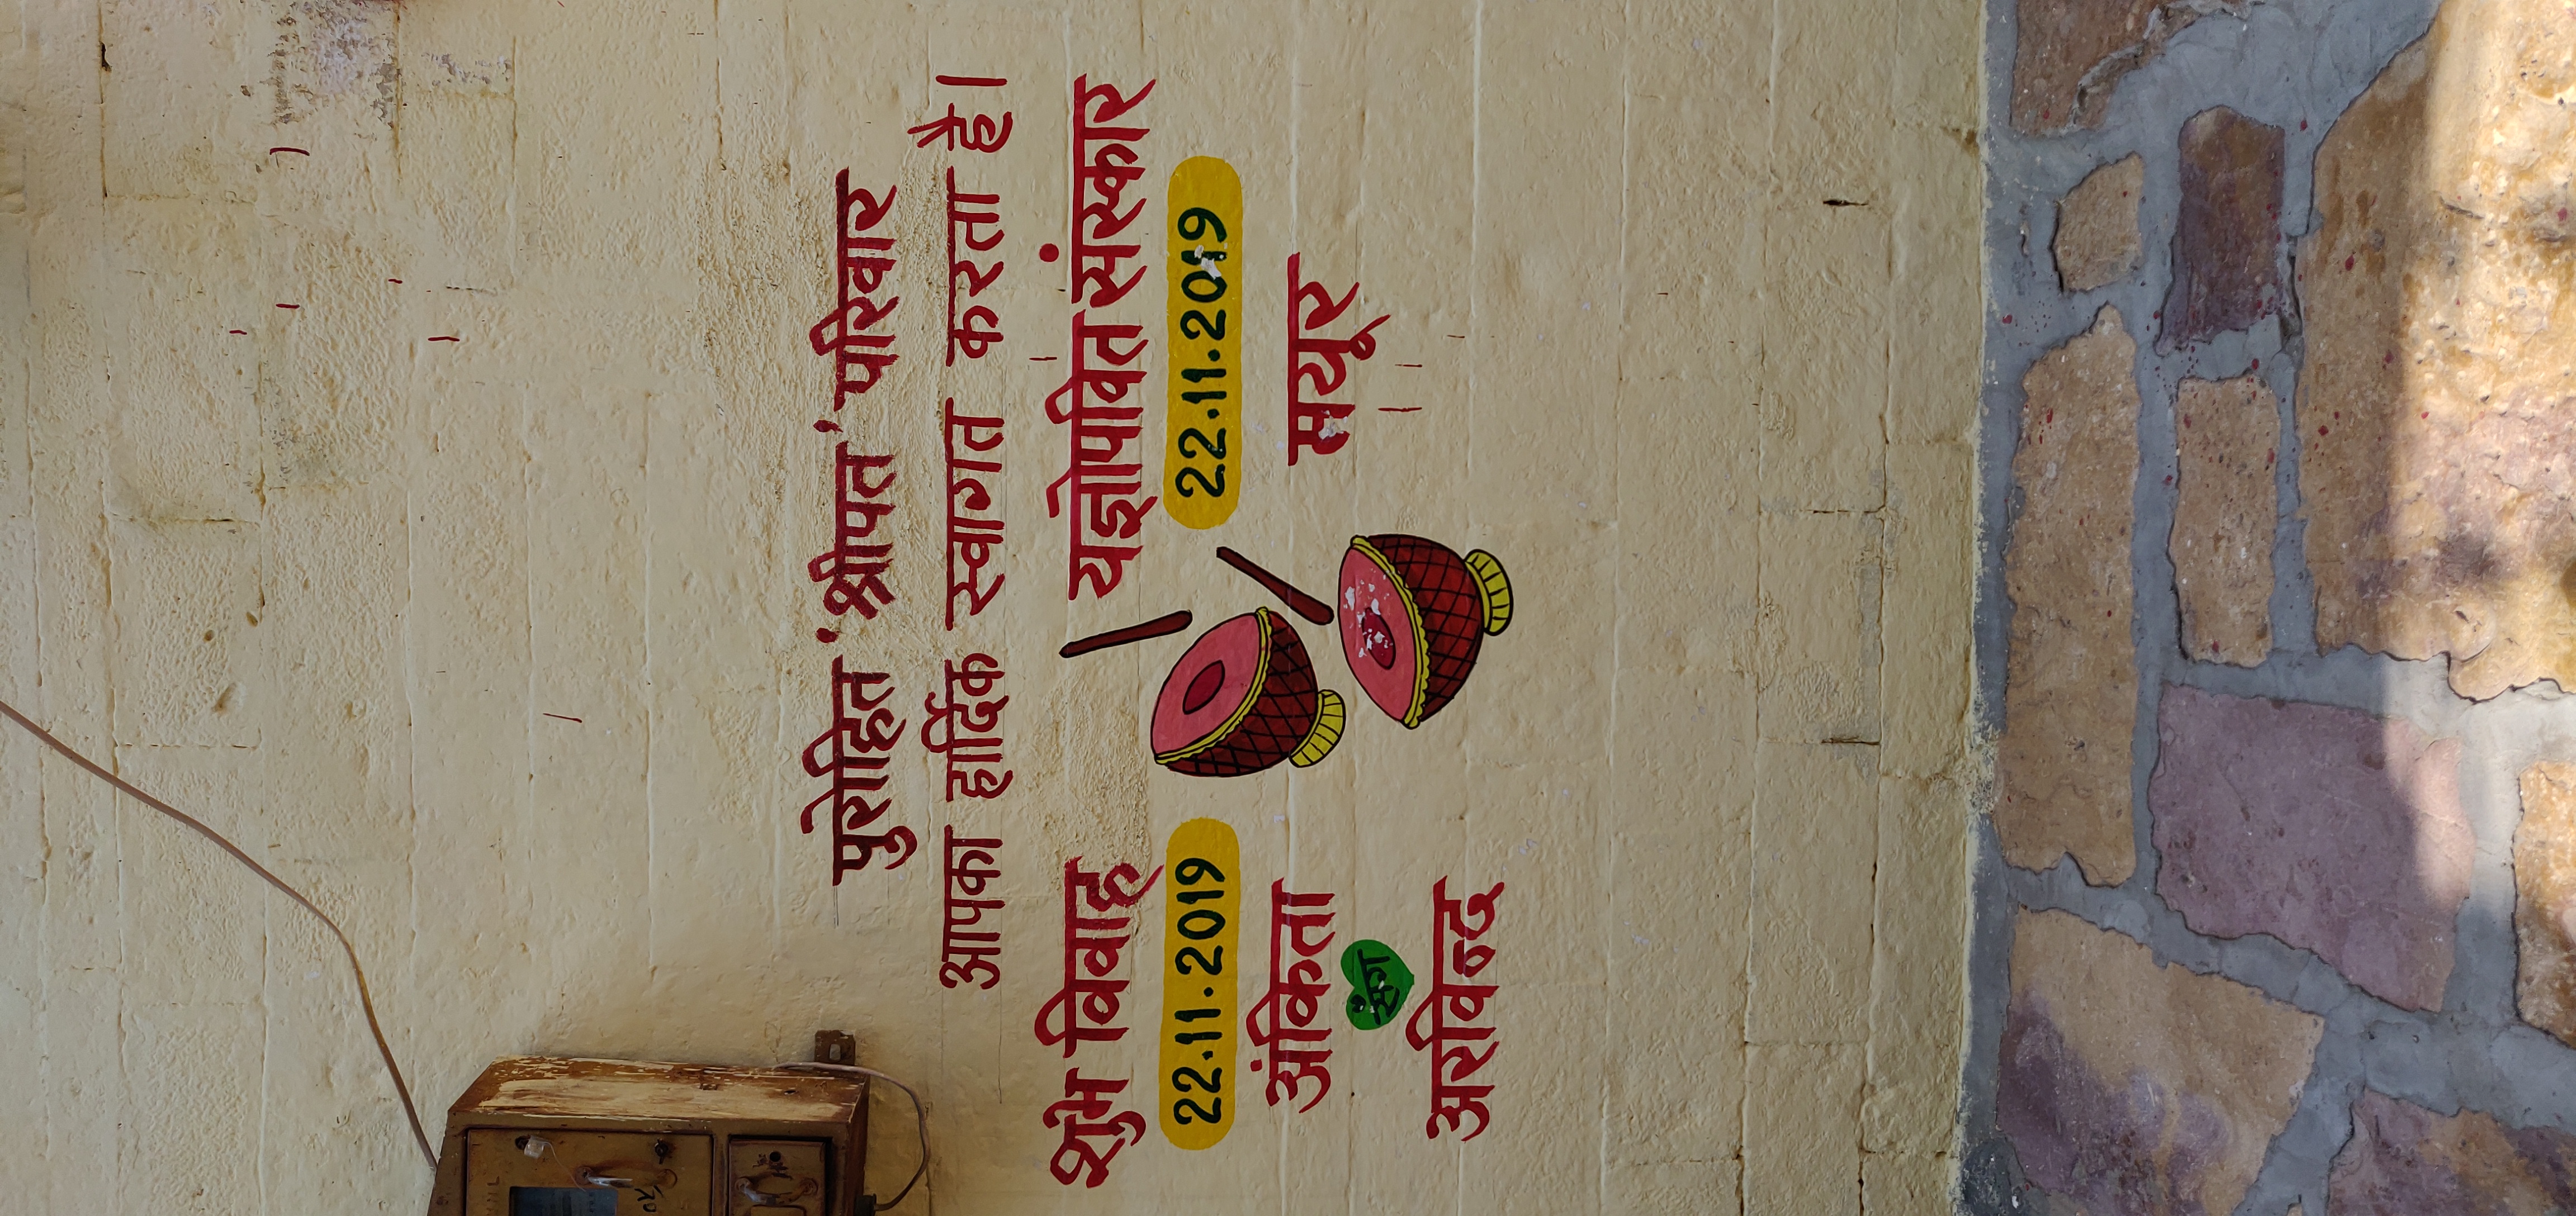 पुरोहित 'श्रीपत' परिवार
आपका हार्दिक स्वागत करता है।
शुभ विवाह
22.11.2019
अंकिता
संग
अरविन्द
यज्ञोपवित संस्कार
22.11.2019
मयूर